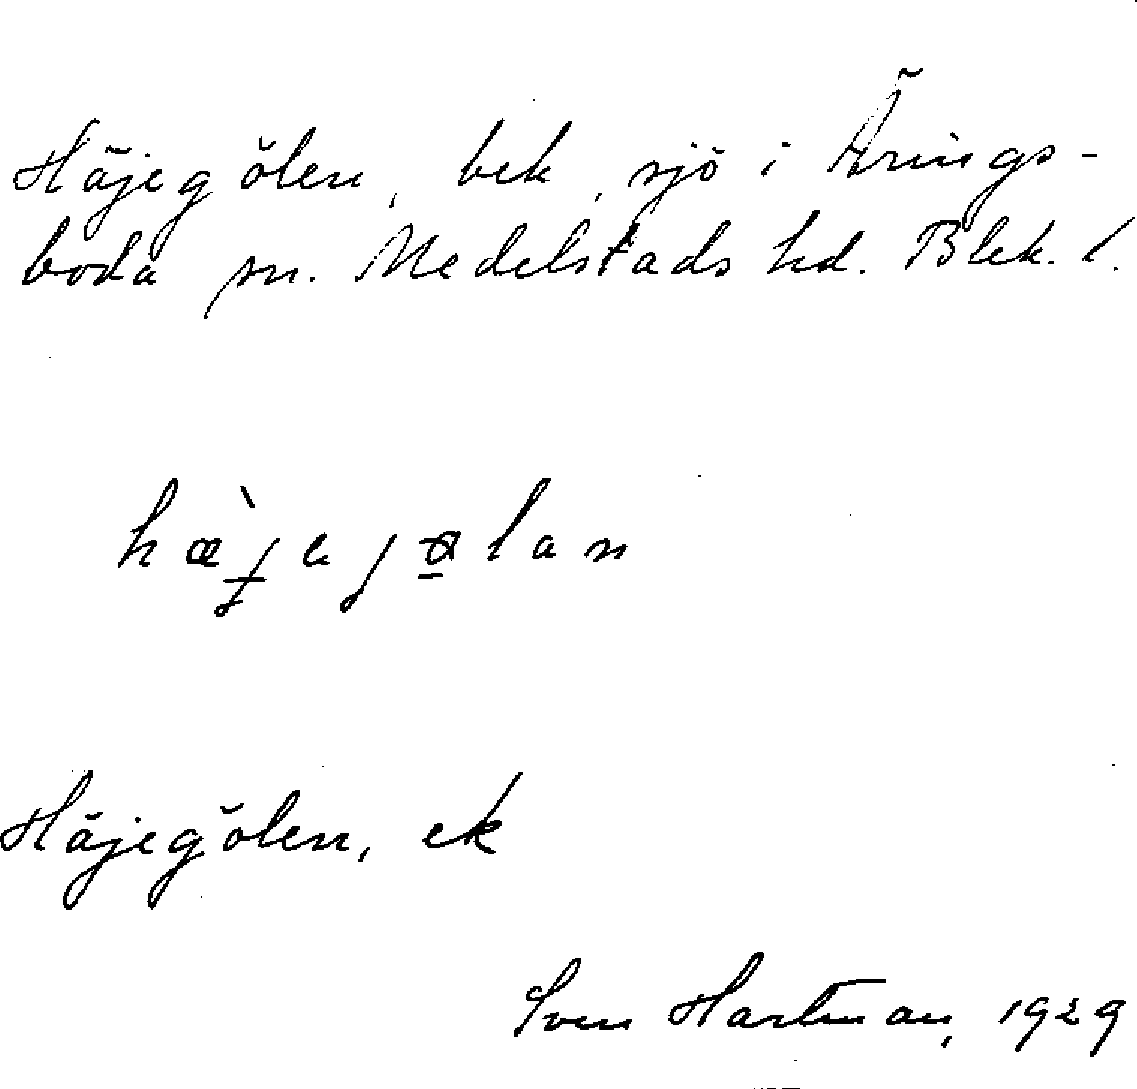 Häjegölen, bek, sjö i Ärings-
boda sn. Medelstads hd. Blek. l.
Häjegölen, ek
Sven Hartman, 1929